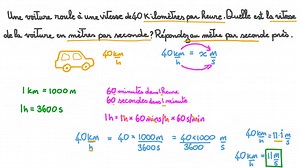 Une voiture roule à une vitesse de 40 kilomètres par heure. Quelle est la vitesse
de la voiture en mètres par seconde ? Répondez au mètre par seconde près.
40 km/h
40 km/h = x m/s
1 km = 1000 m
1 h = 3600 s
60 minutes dans 1 heure
60 secondes dans 1 minute
1 h = 1 h × 60 min/h × 60 s/min
40 km/h = 40 × 1000 m / 3600 s = 40 × 1000 / 3600 m/s
40 km/h = 11.1 m/s
40 km/h = 11 m/s